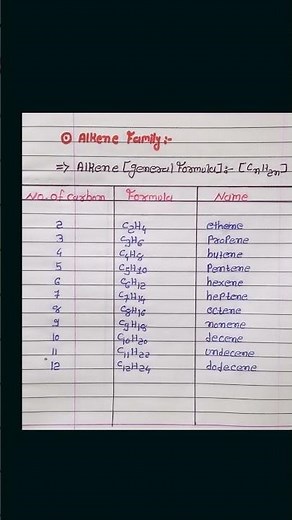 ⊙ Alkene Family:-
=> Alkene [general Formula]:- [CnH2n]
No. of carbon Formula Name
2 C2H4 ethene
3 C3H6 Propene
4 C4H8 butene
5 C5H10 Pentene
6 C6H12 hexene
7 C7H14 heptene
8 C8H16 octene
9 C9H18 nonene
10 C10H20 decene
11 C11H22 undecene
12 C12H24 dodecene